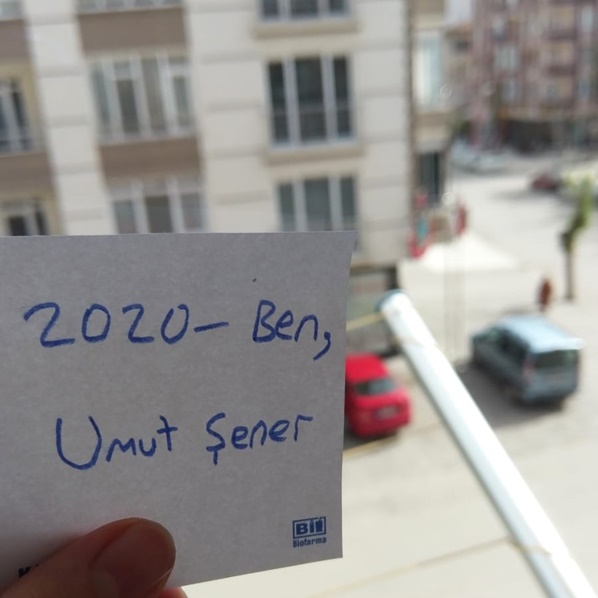 2020- Ben,
Umut Şener
Bii
Biofarma